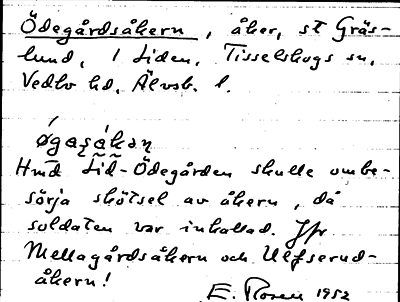 Ödegårdsåkern, åker, st Gräs-
lund, 1 Liden, Tisselskogs sn,
Vedbo hd, Älvsb. l.
øgaṣákaṇ
Hmd Lid-Ödegården skulle ombe-
sörja skötsel av åkern, då
soldaten var inkallad. Jfr
Mellagårdsåkern och Ulfserud-
åkern!
E. Rosen 1952